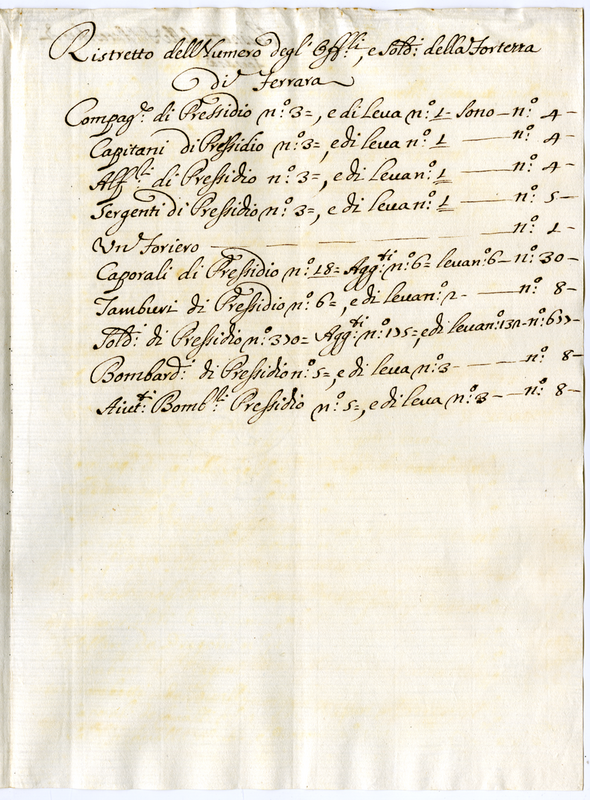 Ristretto dell Numero degl' Off.li, e Sold.i della Fortezza
di Ferrara
Compag.e di Pressidio n.o 3=, e di leva n.o 1- sono — n.o 4-
Capitani di Pressidio n.o 3=, e di leva n.o 1 — n.o 4-
Alf.ti di Pressidio n.o 3=, e di leva n.o 1 — n.o 4-
Sergenti di Pressidio n.o 3=, e di leva n.o 1 — n.o 5-
Un' Foriero — n.o 1-
Caporali di Pressidio n.o 18= Agg.ti n.o 6= leva n.o 6- n.o 30-
Tamburi di Pressidio n.o 6=, e di leva n.o 2- — n.o 8-
Sold.i di Pressidio n.o 370= Agg.ti n.o 175=, e di leva n.o 132- n.o 677-
Bombard.i di Pressidio n.o 5=, e di leva n.o 3- — n.o 8-
Aiut.ti Bomb.li Pressidio n.o 5=, e di leva n.o 3- — n.o 8-